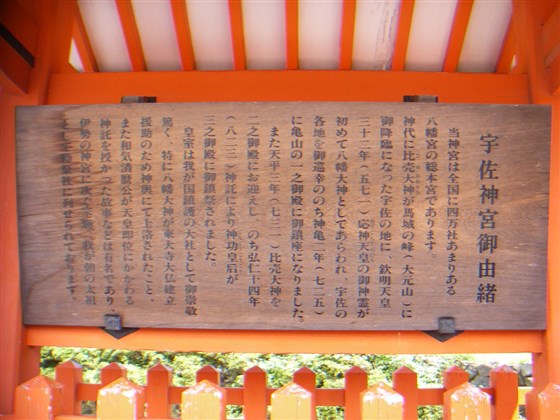 宇佐神宮御由緒
当神宮は全国に四万社あまりある
八幡宮の総本宮であります。
神代に比売大神が馬城の峰（大元山）に
御降臨になった宇佐の地に、欽明天皇
三十二年（五七一）応神天皇の御神霊が
初めて八幡大神としてあらわれ、宇佐の
各地を御巡幸ののち神亀二年（七二五）
に亀山の一之御殿に御鎮座になりました。
また天平三年（七三一）比売大神を
二之御殿にお迎えし、のち弘仁十四年
（八二三）神託により神功皇后が
三之御殿に御鎮祭されました。
皇室は我が国鎮護の大社として御崇敬
篤く、特に八幡大神が東大寺大仏建立
援助のため神輿にて上洛されたこと、
また和気清麿公が天皇即位にかかわる
神託を授かった故事などは有名であり、
伊勢の神宮に次ぐ
我が朝の太祖
に列せられております。